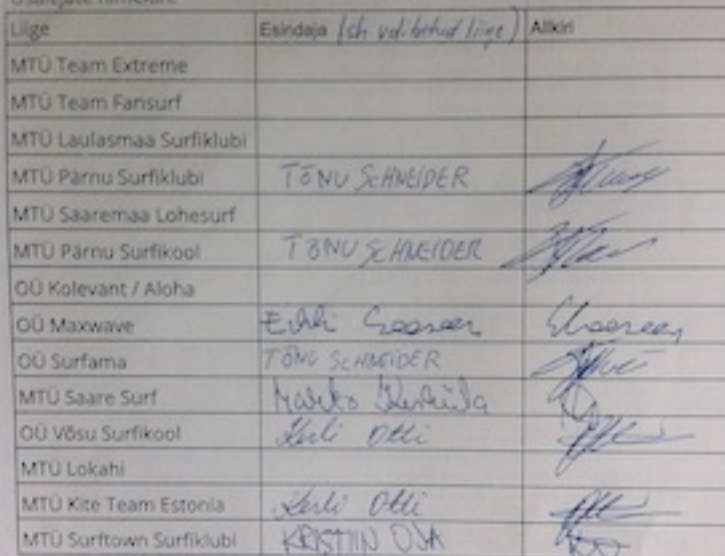 Osalejate nimekiri
Liige Esindaja (sh volitatud liige) Allkiri
MTÜ Team Extreme
MTÜ Team Fansurf
MTÜ Laulasmaa Surfiklubi
MTÜ Pärnu Surfiklubi TÕNU SCHNEIDER
MTÜ Saaremaa Lohesurf
MTÜ Pärnu Surfikool TÕNU SCHNEIDER
OÜ Kolevant / Aloha
OÜ Maxwave
OÜ Surfama TÕNU SCHNEIDER
MTÜ Saare Surf Marko
OÜ Võsu Surfikool Kerli Otti
MTÜ Lokahi
MTÜ Kite Team Estonia Kerli Otti
MTÜ Surftown Surfiklubi KRISTIIN OJA